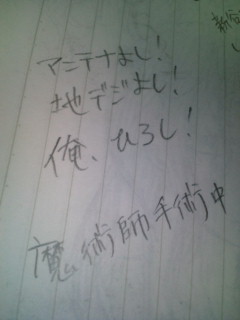 マニテナよし!
地デジよし!
俺、ひろし!
魔術師手術中